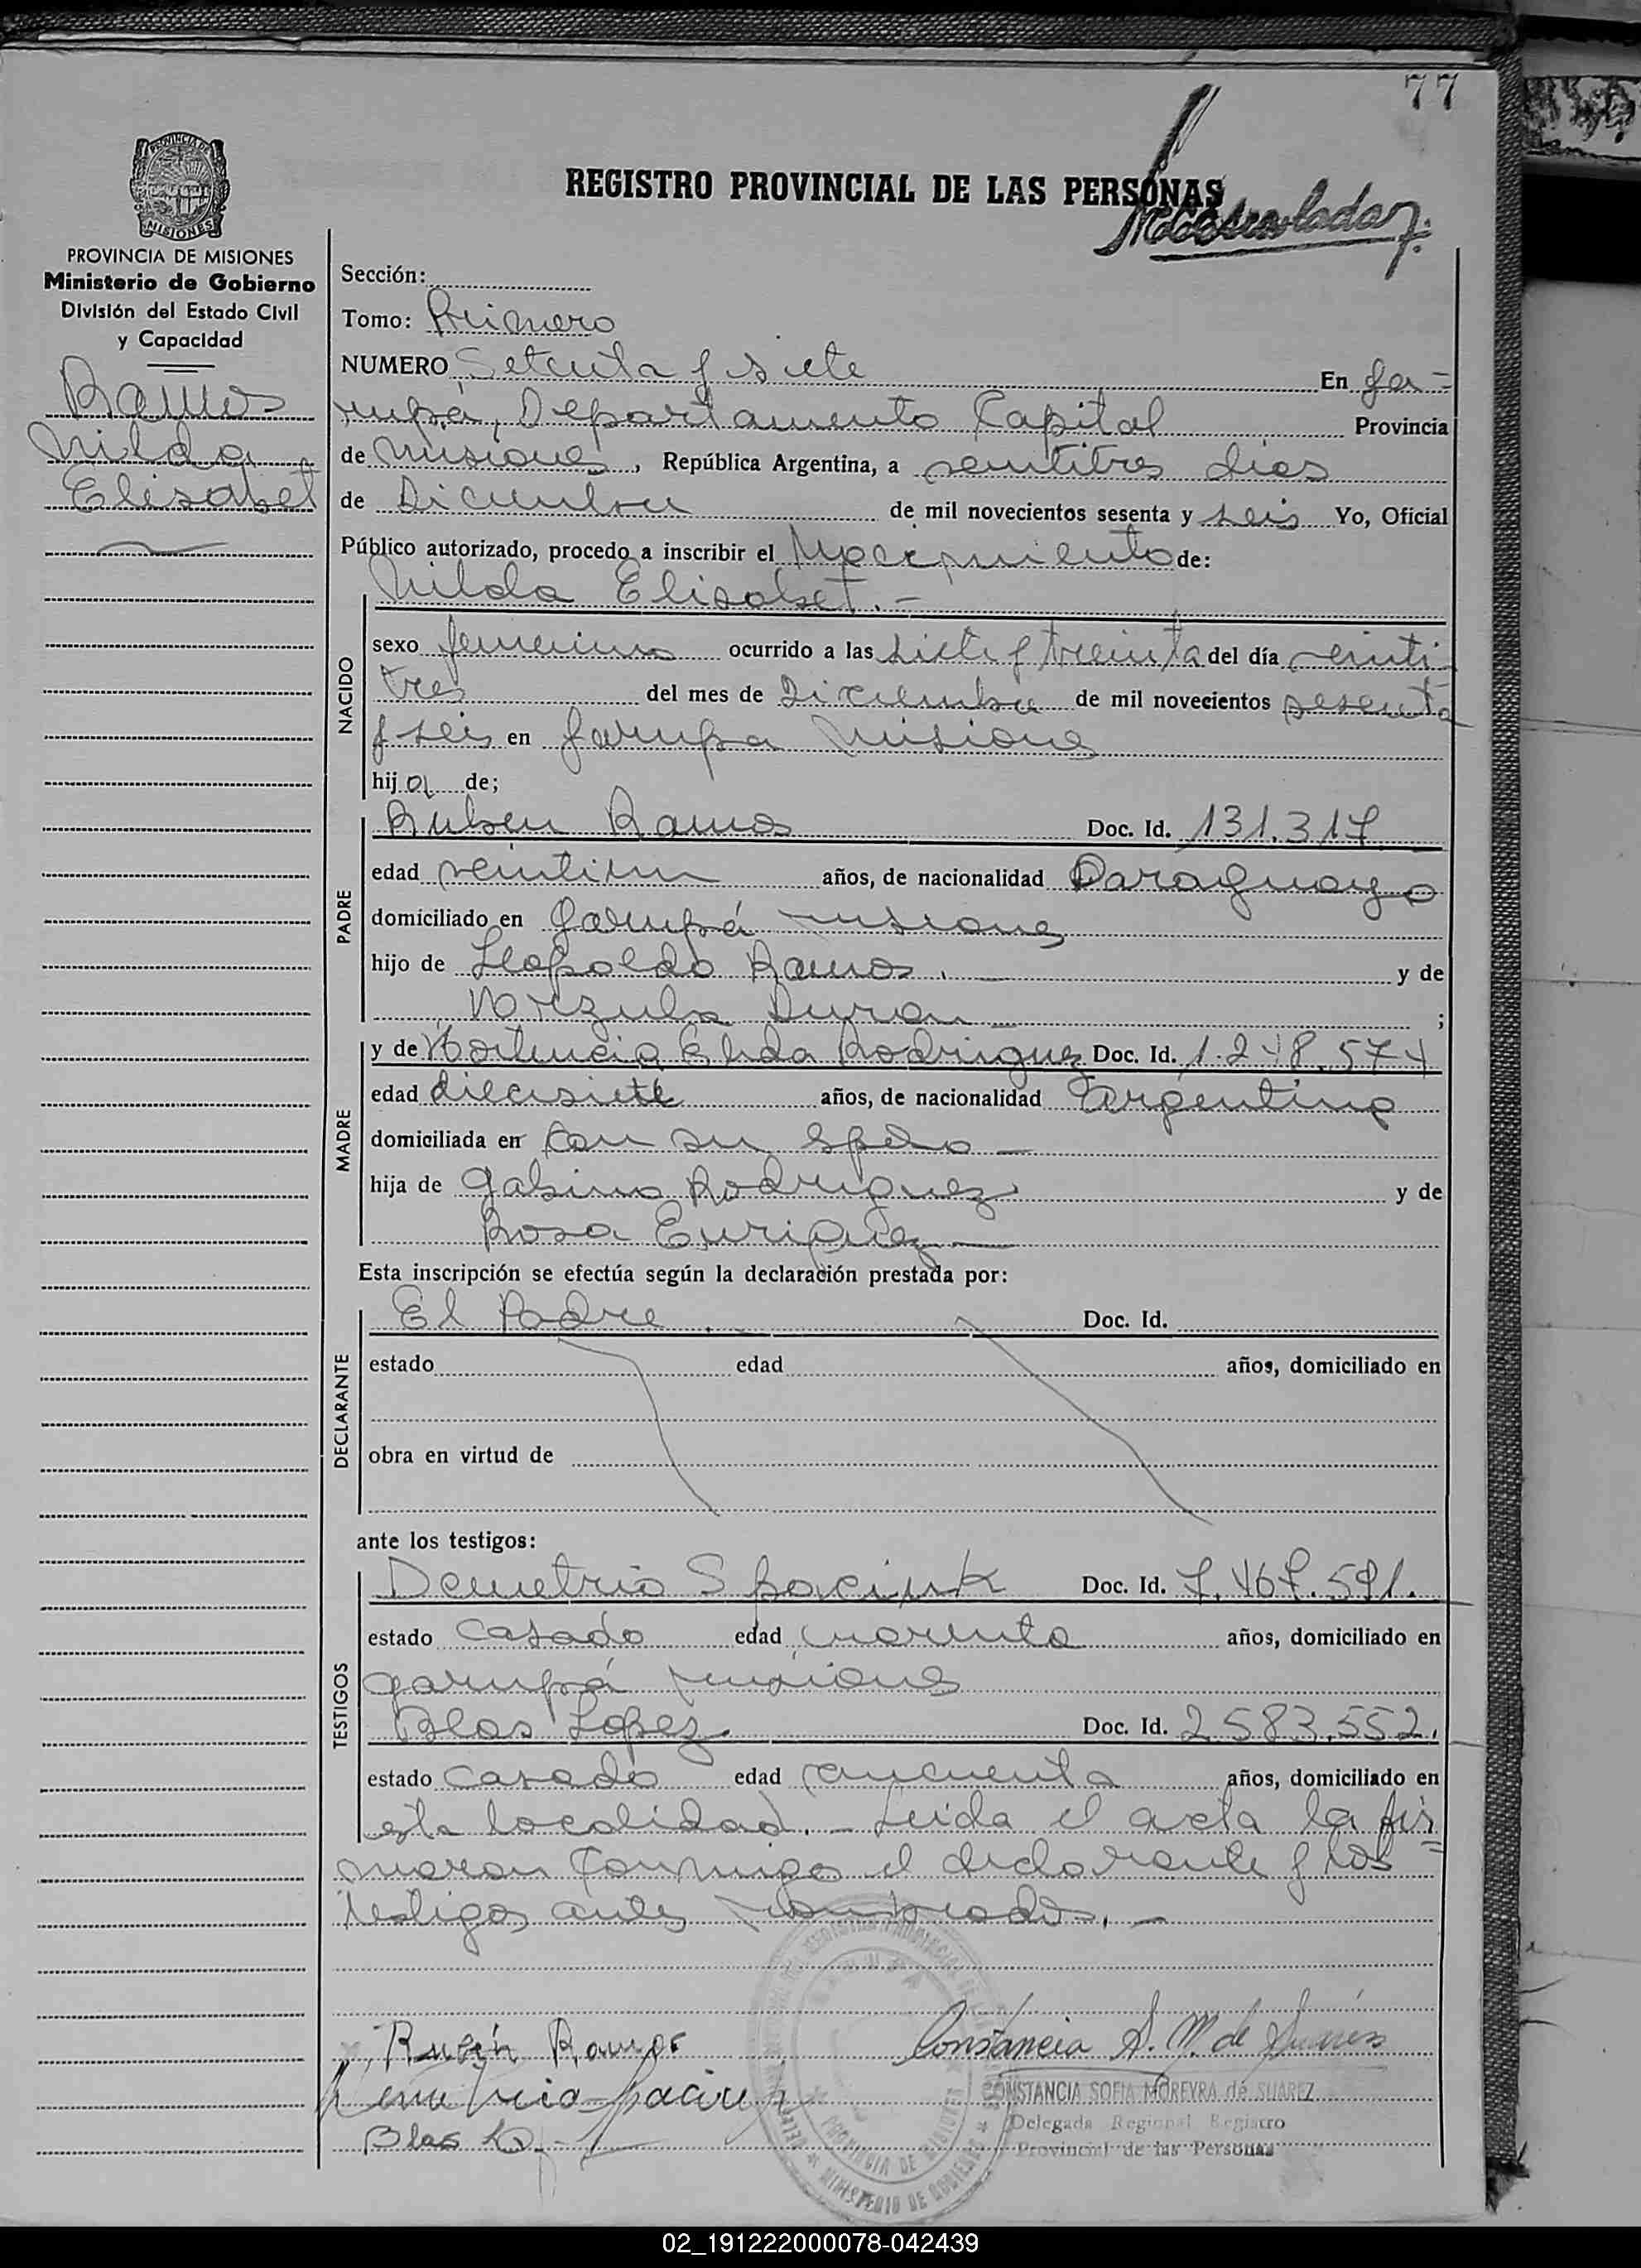 77
REGISTRO PROVINCIAL DE LAS PERSONAS
PROVINCIA DE MISIONES
MISIONES
PROVINCIA DE MISIONES
Ministerio de Gobierno
División del Estado Civil
y Capacidad
Ramos
Nilda
Elisabet
Sección:
Tomo: Primero
NUMERO Setenta y siete En Ga-
rupá, Departamento Capital Provincia
de Misiones, República Argentina, a veintitres dias
de Diciembre de mil novecientos sesenta y seis Yo, Oficial
Público autorizado, procedo a inscribir el Nacimiento de:
Nilda Elisabet.-
NACIDO
sexo femenino ocurrido a las siete y treinta del día veinti
tres del mes de Diciembre de mil novecientos sesenta
y seis en Garupa Misiones
hija de;
PADRE
Ruben Ramos Doc. Id. 131.317
edad veintiun años, de nacionalidad Paraguayo
domiciliado en Garupá Misiones
hijo de Leopoldo Ramos y de
Duran ;
MADRE
y de Hortencia Elida Rodriguez Doc. Id. 1.248.574
edad diecisiete años, de nacionalidad Argentina
domiciliada en con su
hija de Gabino Rodriguez y de
Rosa Enriquez
Esta inscripción se efectúa según la declaración prestada por:
DECLARANTE
El Padre Doc. Id.
estado edad años, domiciliado en
obra en virtud de
ante los testigos:
TESTIGOS
Demetrio Spaciuk Doc. Id. 7.467.591.
estado Casado edad cuarenta años, domiciliado en
garupá misiones
Blas Lopez. Doc. Id. 2.583.552.
estado Casado edad cincuenta años, domiciliado en
esta localidad.- Leida el acta la fir
maron conmigo el declarante y los
testigos antes nombrados.-
Rubén Ramos
Constancia S. M. de Suarez
CONSTANCIA SOFIA MOREYRA de SUAREZ
Delegada Regional Registro
Provincial de las Personas
Blas
PROVINCIA DE MISIONES
MINISTERIO DE GOBIERNO
02_191222000078-042439